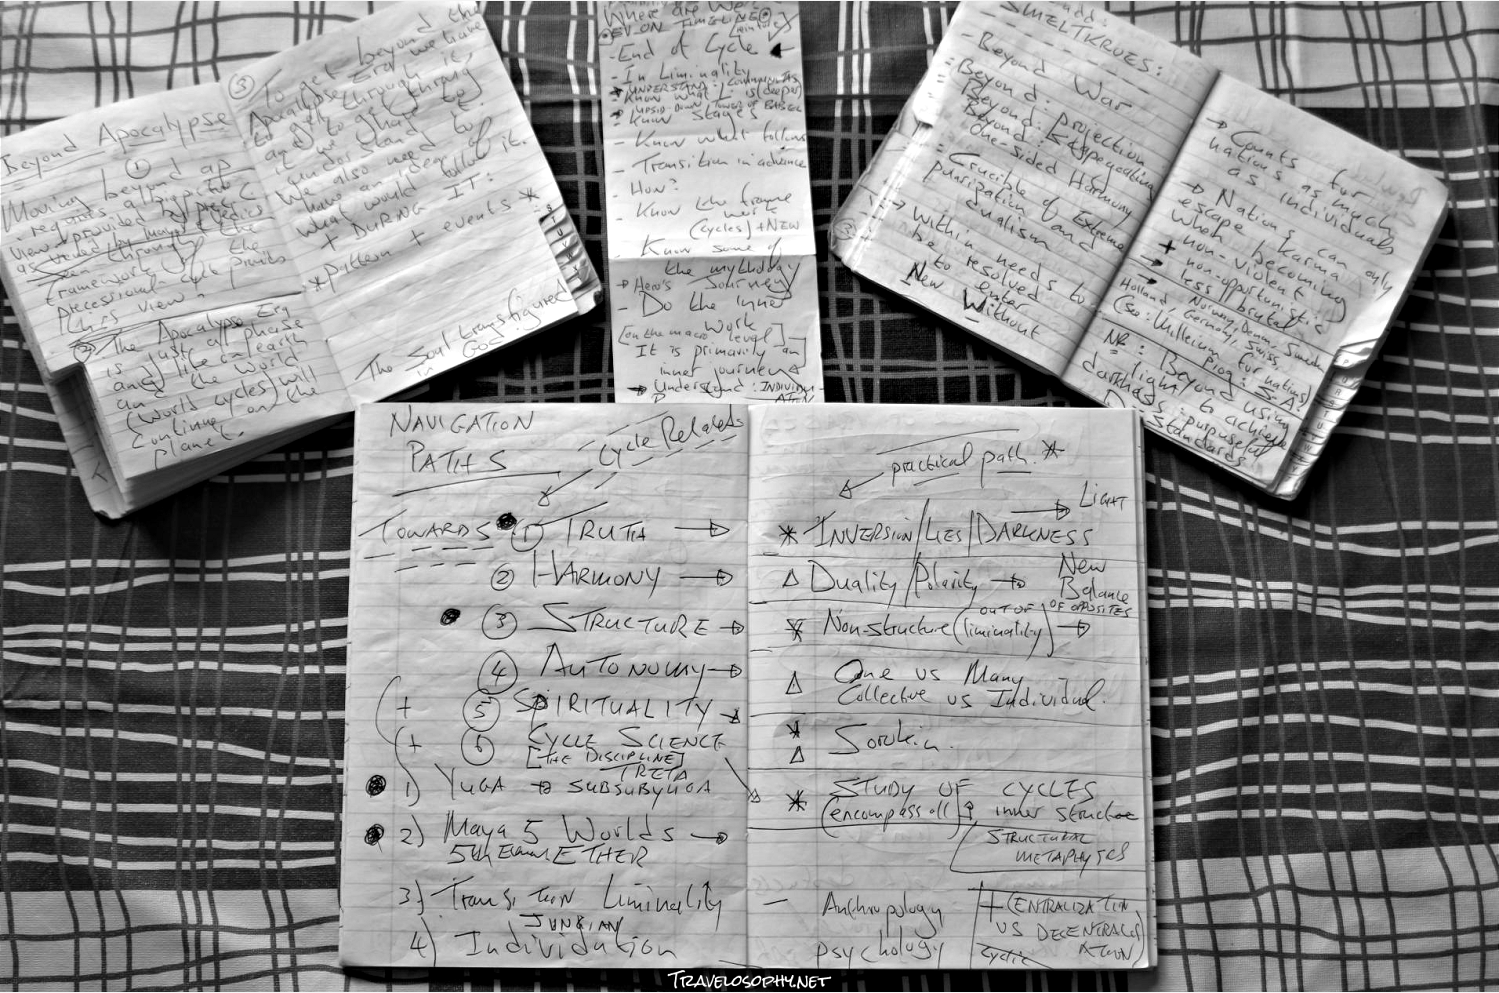 Beyond Apocalypse
①
Moving beyond ap.
requires a historic
view as provided by prec. C
as viewed by maya & vedics
Seen through the
framework of
precessional-cult provides
this view.
② The Apocalypse Era
is just a phase
and life on earth
and the world
(world cycles) will
continue on the
planet.
③ To get beyond the
Apocalypse Era we have
to go through it,
and to get through
it we need to
understand it.
We also need to
have an idea of
what would follow it.
+ DURING IT:
*pattern + events *
The Soul transfigured
in God
Where are we
ON TIMELINE
- End of Cycle
- In Liminality
UNDERSTAND COMMUNITAS
Know what L is (deeper)
UPSIDE DOWN TOWER OF BABEL
Know stages
- Know what follows
- Transition in advance
How?
- Know the frame
work
(cycles) + NEW
- Know some of
the mythology
→ Hero's Journey
- Do the inner
work
[on the macro level]
It is primarily an
inner journey
→ Understand: INDIVIDU
ATION
add:
SMELTKROES:
- Beyond War
= Beyond: projection
Beyond: Scapegoating
Beyond: One-sided Harmony
= Crucible of Extreme
purification and
dualism
→ Within need to
be resolved
to enter
New Without
→ Counts for
nations as much
as individuals
→ Nations can only
escape karma
when becoming
+ non-violent
→ non-opportunistic
→ less // brutal
Holland Norway, Denm, Sweden
Germany, Swiss,
(see: Millenium Prog: S.A.
for nations)
NB: Beyond using
light to achieve
darkness purposeful
D: Standards
NAVIGATION
PATHS
Cycle Related
TOWARDS ① TRUTH →
② HARMONY →
③ STRUCTURE →
④ AUTONOMY →
+ ⑤ SPIRITUALITY
+ ⑥ CYCLE SCIENCE
[THE DISCIPLINE]
TRETA
1) YUGA → SUBSUBYUGA
2) Maya 5 Worlds →
5th Element ETHER
3) Transition Liminality
JUNGIAN
4) Individuation
practical path. *
→ LIGHT
* INVERSION/LIES/DARKNESS
△ Duality/Polarity → New
Balance
OF OPPOSITES
* Non-structure (liminality) OUT OF →
△ One vs Many
Collective vs Individual.
*
△ Sorokin.
* STUDY OF CYCLES
(encompass all) inner structure
STRUCTURAL
METAPHYSICS
- Anthropology
psychology
+ (CENTRALIZATION
VS DECENTRALIZ
ATION)
cyclic
TRAVELOSOPHY.NET